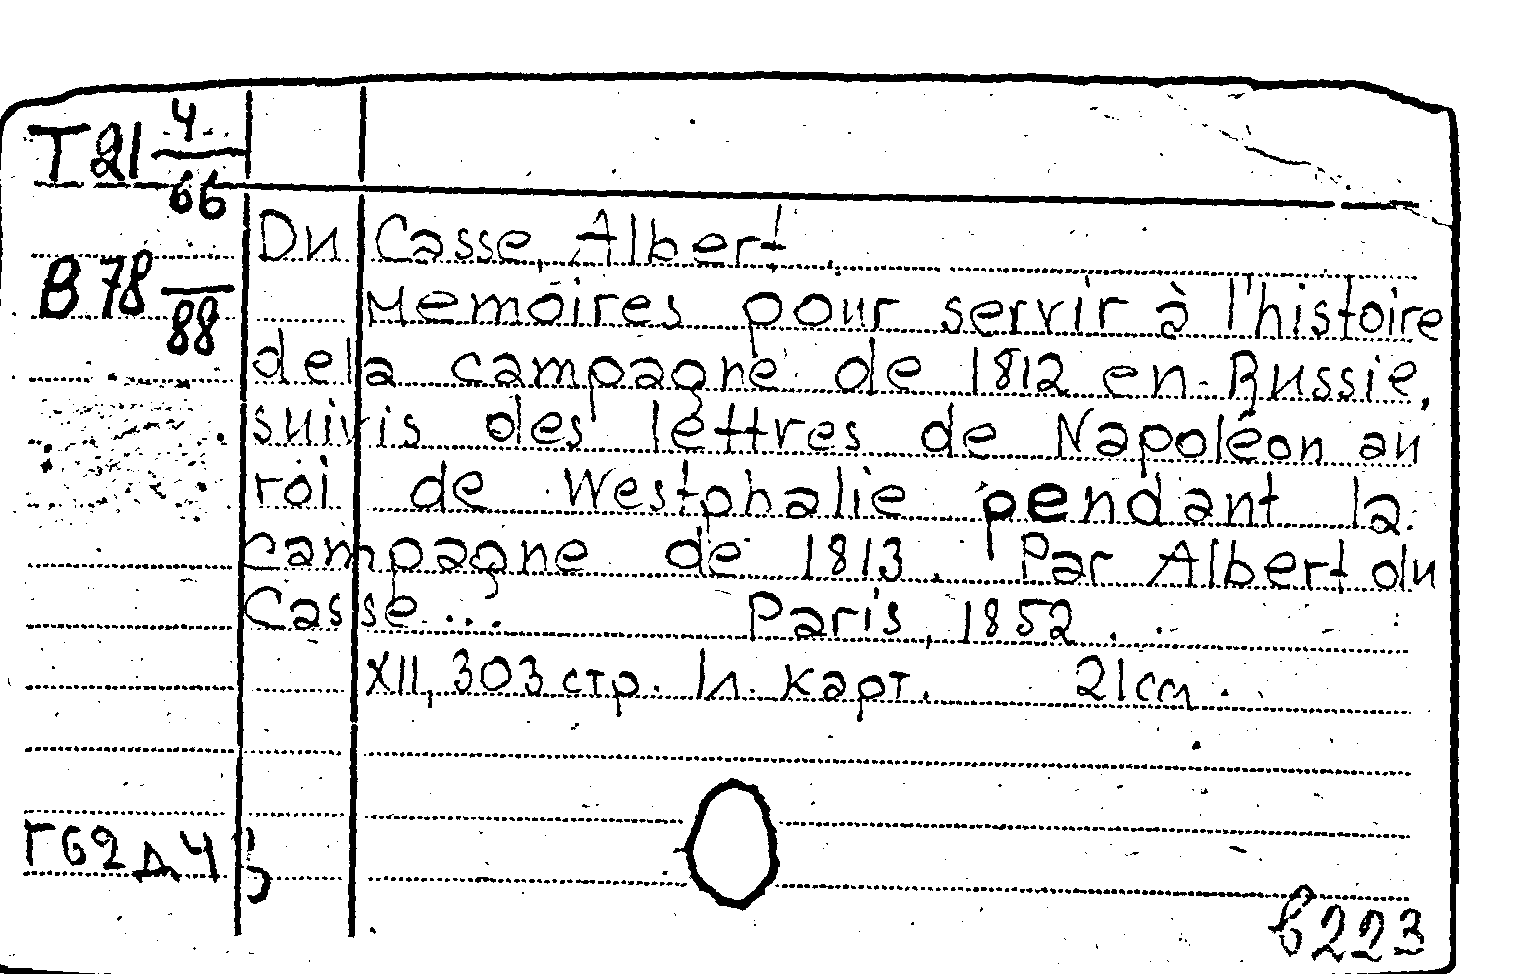 T21 4/66
Du Casse, Albert.
B78 /88
Memoires pour servir à l'histoire
de la campagne de 1812 en Russie,
suivis des lettres de Napoléon au
roi de Westphalie pendant la
campagne de 1813. Par Albert du
Casse... Paris, 1852.
XII, 303 стр. Ил. карт. 21 см.
Г62 д 4
6223